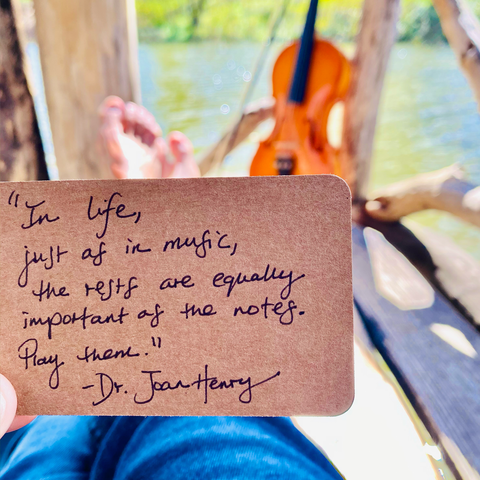 "In life,
just as in music,
the rests are equally
important as the notes.
Play them."
-Dr. Joan Henry